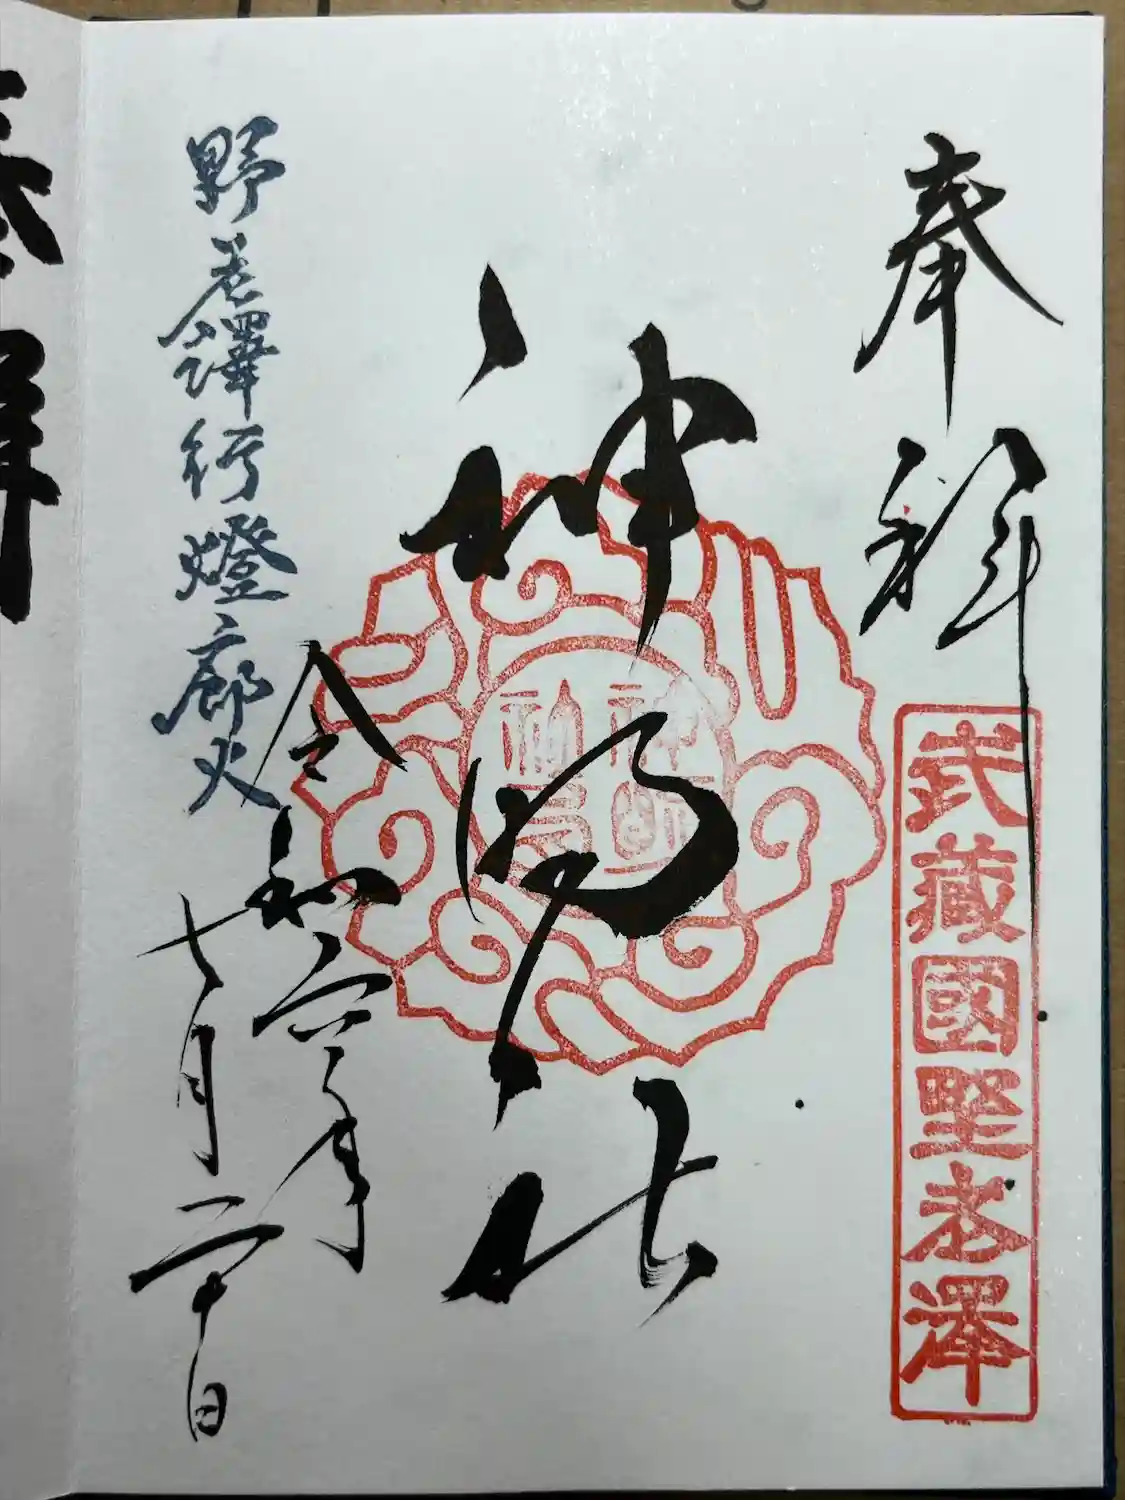 奉拝
武藏國墅老澤
神明社
令和六年
七月二十日
野老澤行燈廊火